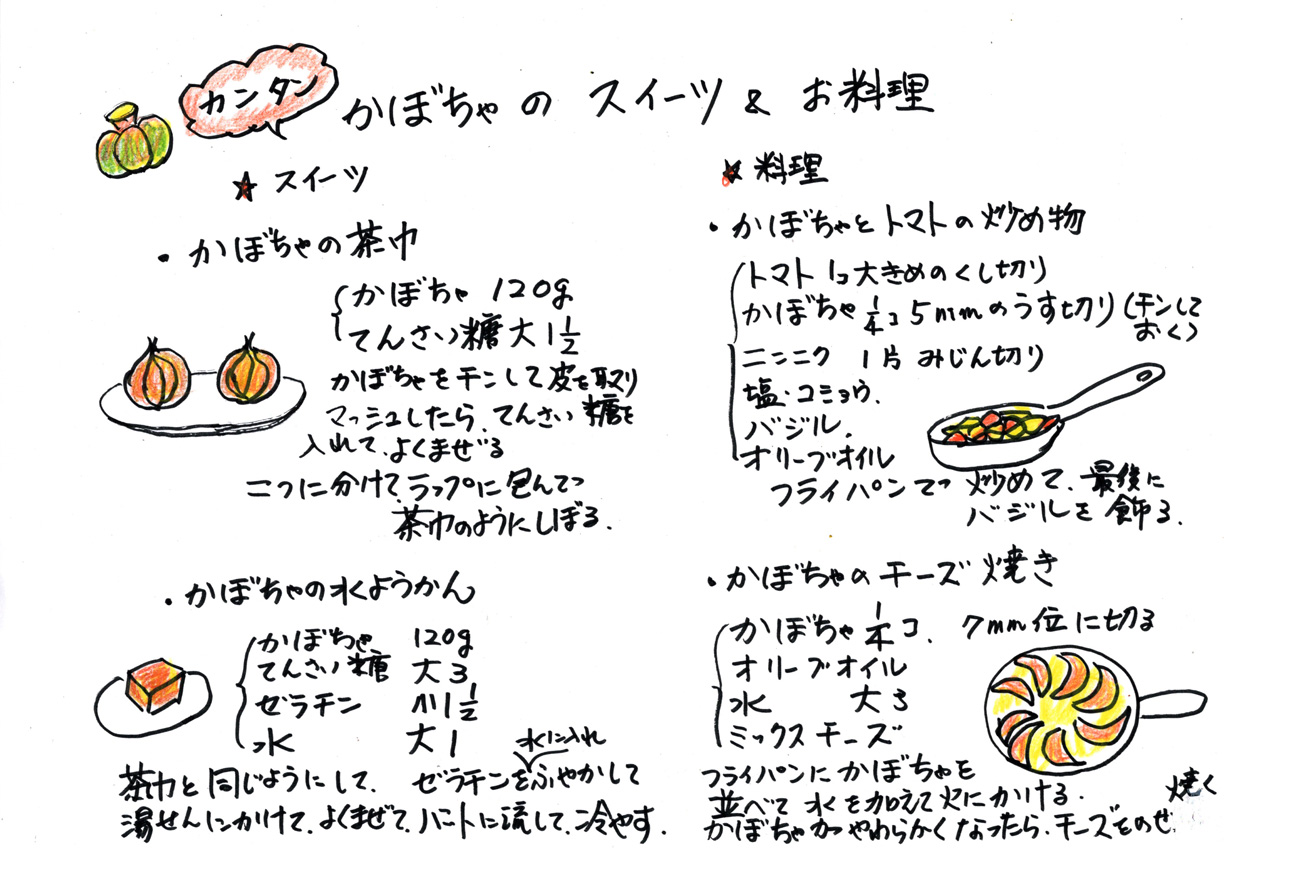 カンタン
かぼちゃの スイーツ & お料理
★ スイーツ
・かぼちゃの茶巾
かぼちゃ 120g
てんさい糖 大1 1/2
かぼちゃを チンして 皮を取り
マッシュしたら、てんさい糖を
入れて、よくまぜる
二つに分けて ラップに包んで
茶巾のようにしぼる.
・かぼちゃの水ようかん
かぼちゃ 120g
てんさい糖 大3
ゼラチン 小1 1/2
水 大1
水に入れ
茶巾と同じようにして、ゼラチンをふやかして
湯せんにかけて、よくまぜて、バットに流して、冷やす.
★ 料理
・かぼちゃとトマトの炒め物
トマト 1コ 大きめのくし切り
かぼちゃ 1/4コ 5mmのうす切り (チンして
おく)
ニンニク 1片 みじん切り
塩・コショウ.
バジル.
オリーブオイル
フライパンで 炒めて、最後に
バジルを飾る.
・かぼちゃのチーズ焼き
かぼちゃ 1/4コ. 7mm位に切る
オリーブオイル
水 大3
ミックスチーズ
フライパンに かぼちゃを
並べて 水を加えて火にかける.
かぼちゃがやわらかくなったら、チーズをのせ
焼く